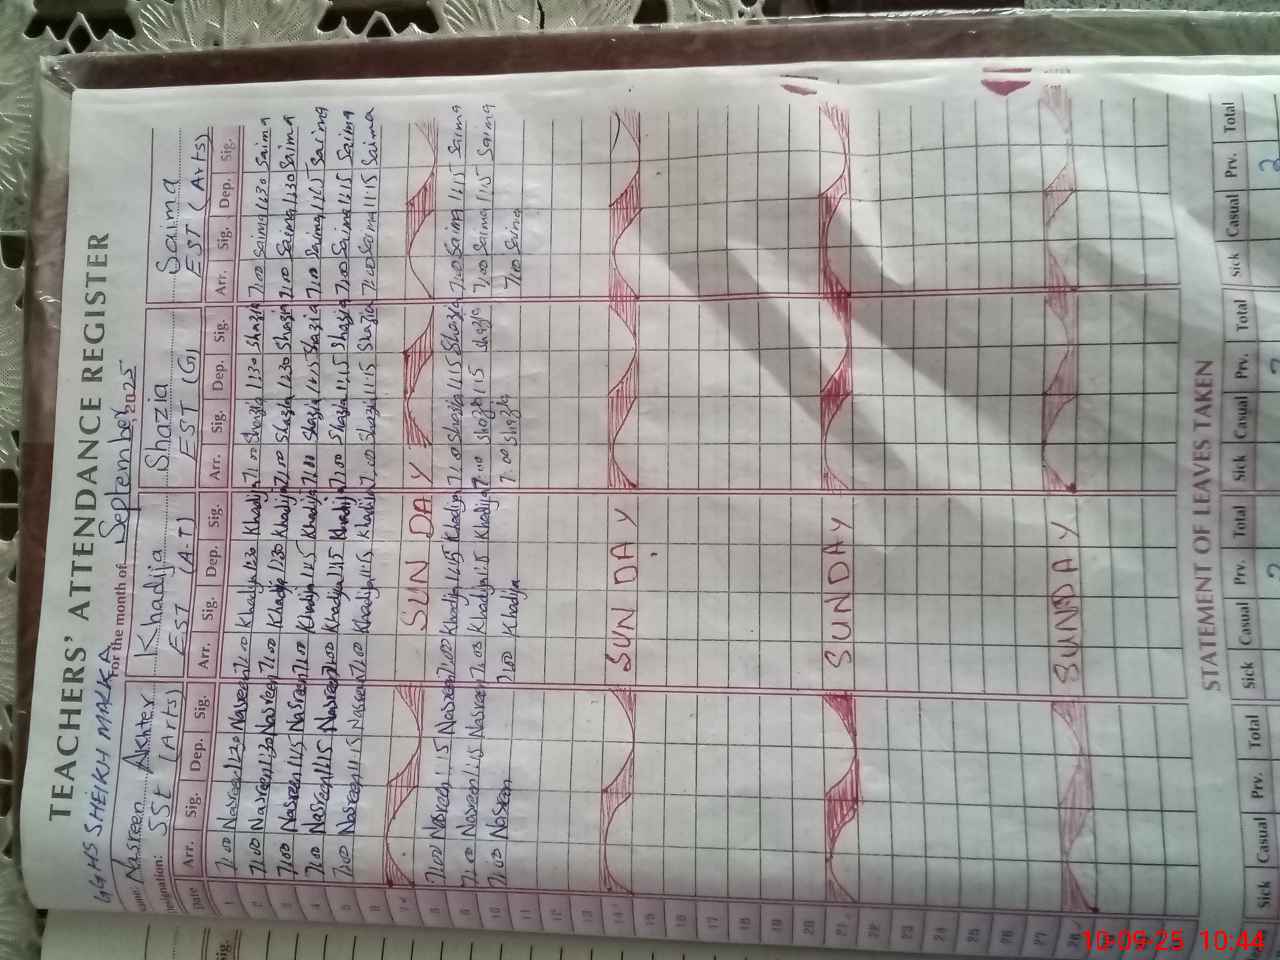 TEACHERS' ATTENDANCE REGISTER
GGHS SHEIKH MAKKA For the month of September 2025
Nasreen Akhter Khadija Shazia Saima
Designation: SST (Arts) EST (A-T) EST (G) EST (Arts)
Date Arr. Sig. Dep. Sig. Arr. Sig. Dep. Sig. Arr. Sig. Dep. Sig. Arr. Sig. Dep. Sig.
1 7:00 Nasreen 1:30 Nasreen 7:00 Khadija 1:30 Khadija 7:00 Shazia 1:30 Shazia 7:00 Saima 1:30 Saima
2 7:00 Nasreen 1:30 Nasreen 7:00 Khadija 1:30 Khadija 7:00 Shazia 1:30 Shazia 7:00 Saima 1:30 Saima
3 7:00 Nasreen 1:15 Nasreen 7:00 Khadija 1:15 Khadija 7:00 Shazia 1:15 Shazia 7:00 Saima 1:15 Saima
4 7:00 Nasreen 1:15 Nasreen 7:00 Khadija 1:15 Khadija 7:00 Shazia 1:15 Shazia 7:00 Saima 1:15 Saima
5 7:00 Nasreen 11:15 Nasreen 7:00 Khadija 11:15 Khadija 7:00 Shazia 11:15 Shazia 7:00 Saima 11:15 Saima
6
7 SUNDAY
8 7:00 Nasreen 1:15 Nasreen 7:00 Khadija 1:15 Khadija 7:00 Shazia 1:15 Shazia 7:00 Saima 1:15 Saima
9 7:00 Nasreen 1:15 Nasreen 7:00 Khadija 1:15 Khadija 7:00 Shazia 1:15 Shazia 7:00 Saima 1:15 Saima
10 7:00 Nasreen 7:00 Khadija 7:00 Shazia 7:00 Saima
11
12
13
14 SUNDAY
15
16
17
18
19
20
21 SUNDAY
22
23
24
25
26
27
28 SUNDAY
STATEMENT OF LEAVES TAKEN
Sick Casual Prv. Total Sick Casual Prv. Total Sick Casual Prv. Total Sick Casual Prv. Total
10-09-25 10:44